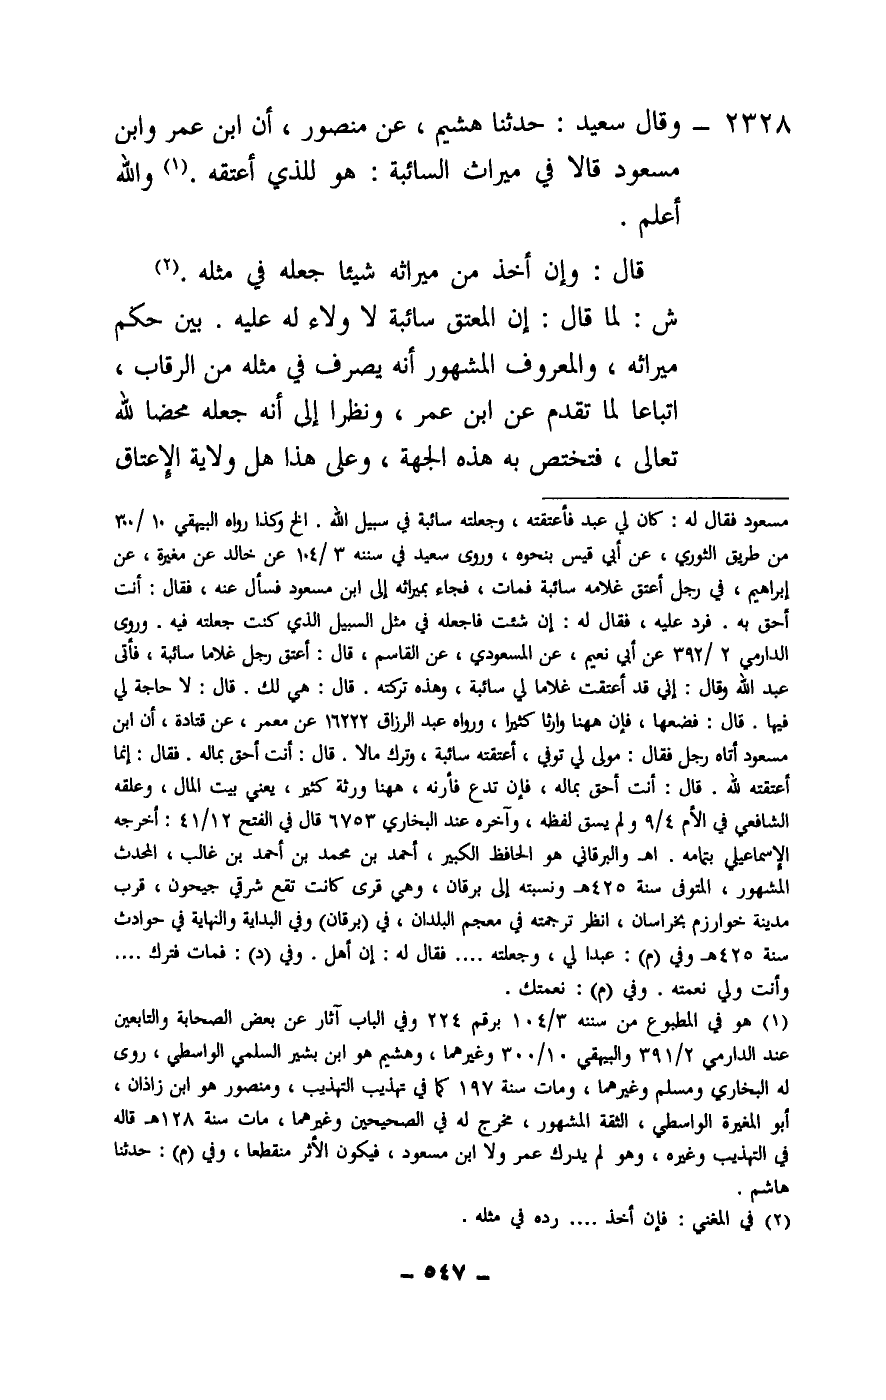 ٢٣٢٨ – وقال سعيد : حدثنا هشيم ، عن منصور ، أن ابن عمر وابن
مسعود قالا في ميراث السائبة : هو للذي أعتقه .(١) والله
أعلم .
قال : وإن أخذ من ميراثه شيئا جعله في مثله .(٢)
ش : لما قال : إن المعتق سائبة لا ولاء له عليه . بين حكم
ميراثه ، والمعروف المشهور أنه يصرف في مثله من الرقاب ،
اتباعا لما تقدم عن ابن عمر ، ونظرا إلى أنه جعله محضا لله
تعالى ، فتختص به هذه الجهة ، وعلى هذا هل ولاية الإعتاق
مسعود فقال له : كان لي عبد فأعتقته ، وجعلته سائبة في سبيل الله . الخ وكذا رواه البيهقي ١٠ /٣٠٠
من طريق الثوري ، عن أبي قيس بنحوه ، وروى سعيد في سننه ٣ /١٠٤ عن خالد عن مغيرة ، عن
إبراهيم ، في رجل أعتق غلامه سائبة فمات ، فجاء بميراثه إلى ابن مسعود فسأل عنه ، فقال : أنت
أحق به . فرد عليه ، فقال له : إن شئت فاجعله في مثل السبيل الذي كنت جعلته فيه . وروى
الدارمي ٢ /٣٩٢ عن أبي نعيم ، عن المسعودي ، عن القاسم ، قال : أعتق رجل غلاما سائبة ، فأتى
عبد الله وقال : إني قد أعتقت غلاما لي سائبة ، وهذه تركته . قال : هي لك . قال : لا حاجة لي
فيها . قال : فضعها ، فإن ههنا وارثا كثيرا ، ورواه عبد الرزاق ١٦٢٢٢ عن معمر ، عن قتادة ، أن ابن
مسعود أتاه رجل فقال : مولى لي توفي ، أعتقته سائبة ، وترك مالا . قال : أنت أحق بماله . فقال : إنما
أعتقته لله . قال : أنت أحق بماله ، فإن تدع فأرنه ، ههنا ورثة كثير ، يعني بيت المال ، وعلقه
الشافعي في الأم ٩/٤ ولم يسق لفظه ، وآخره عند البخاري ٦٧٥٣ قال في الفتح ٤١/١٢ : أخرجه
الإسماعيلي بتمامه . اهـ والبرقاني هو الحافظ الكبير ، أحمد بن محمد بن أحمد بن غالب ، المحدث
المشهور ، المتوفى سنة ٤٢٥هـ ونسبته إلى برقان ، وهي قرى كانت تقع شرقي جيحون ، قرب
مدينة خوارزم بخراسان ، انظر ترجمته في معجم البلدان ، في (برقان) وفي البداية والنهاية في حوادث
سنة ٤٢٥هـ وفي (م) : عبدا لي ، وجعلته .... فقال له : إن أهل . وفي (د) : فمات فترك ....
وأنت ولي نعمته . وفي (م) : نعمتك .
(١) هو في المطبوع من سننه ١٠٤/٣ برقم ٢٢٤ وفي الباب آثار عن بعض الصحابة والتابعين
عند الدارمي ٣٩١/٢ والبيهقي ٣٠٠/١٠ وغيرهما ، وهشيم هو ابن بشير السلمي الواسطي ، روى
له البخاري ومسلم وغيرهما ، ومات سنة ١٩٧ كما في تهذيب التهذيب ، ومنصور هو ابن زاذان ،
أبو المغيرة الواسطي ، الثقة المشهور ، مخرج له في الصحيحين وغيرهما ، مات سنة ١٢٨هـ قاله
في التهذيب وغيره ، وهو لم يدرك عمر ولا ابن مسعود ، فيكون الأثر منقطعا ، وفي (م) : حدثنا
هاشم .
(٢) في المغني : فإن أخذ .... رده في مثله .
– ٥٤٧ –